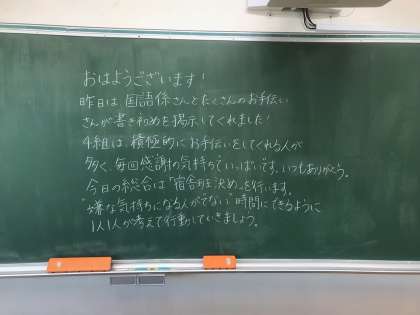 おはようございます!
昨日は国語係さんとたくさんのお手伝い
さんが書き初めを掲示してくれました!
4組は、積極的にお手伝いをしてくれる人が
多く、毎回感謝の気持ちでいっぱいです。いつもありがとう。
今日の総合は「宿舎班決め」を行います。
"嫌な気持ちになる人がでない"時間にできるように
1人1人が考えて行動していきましょう。